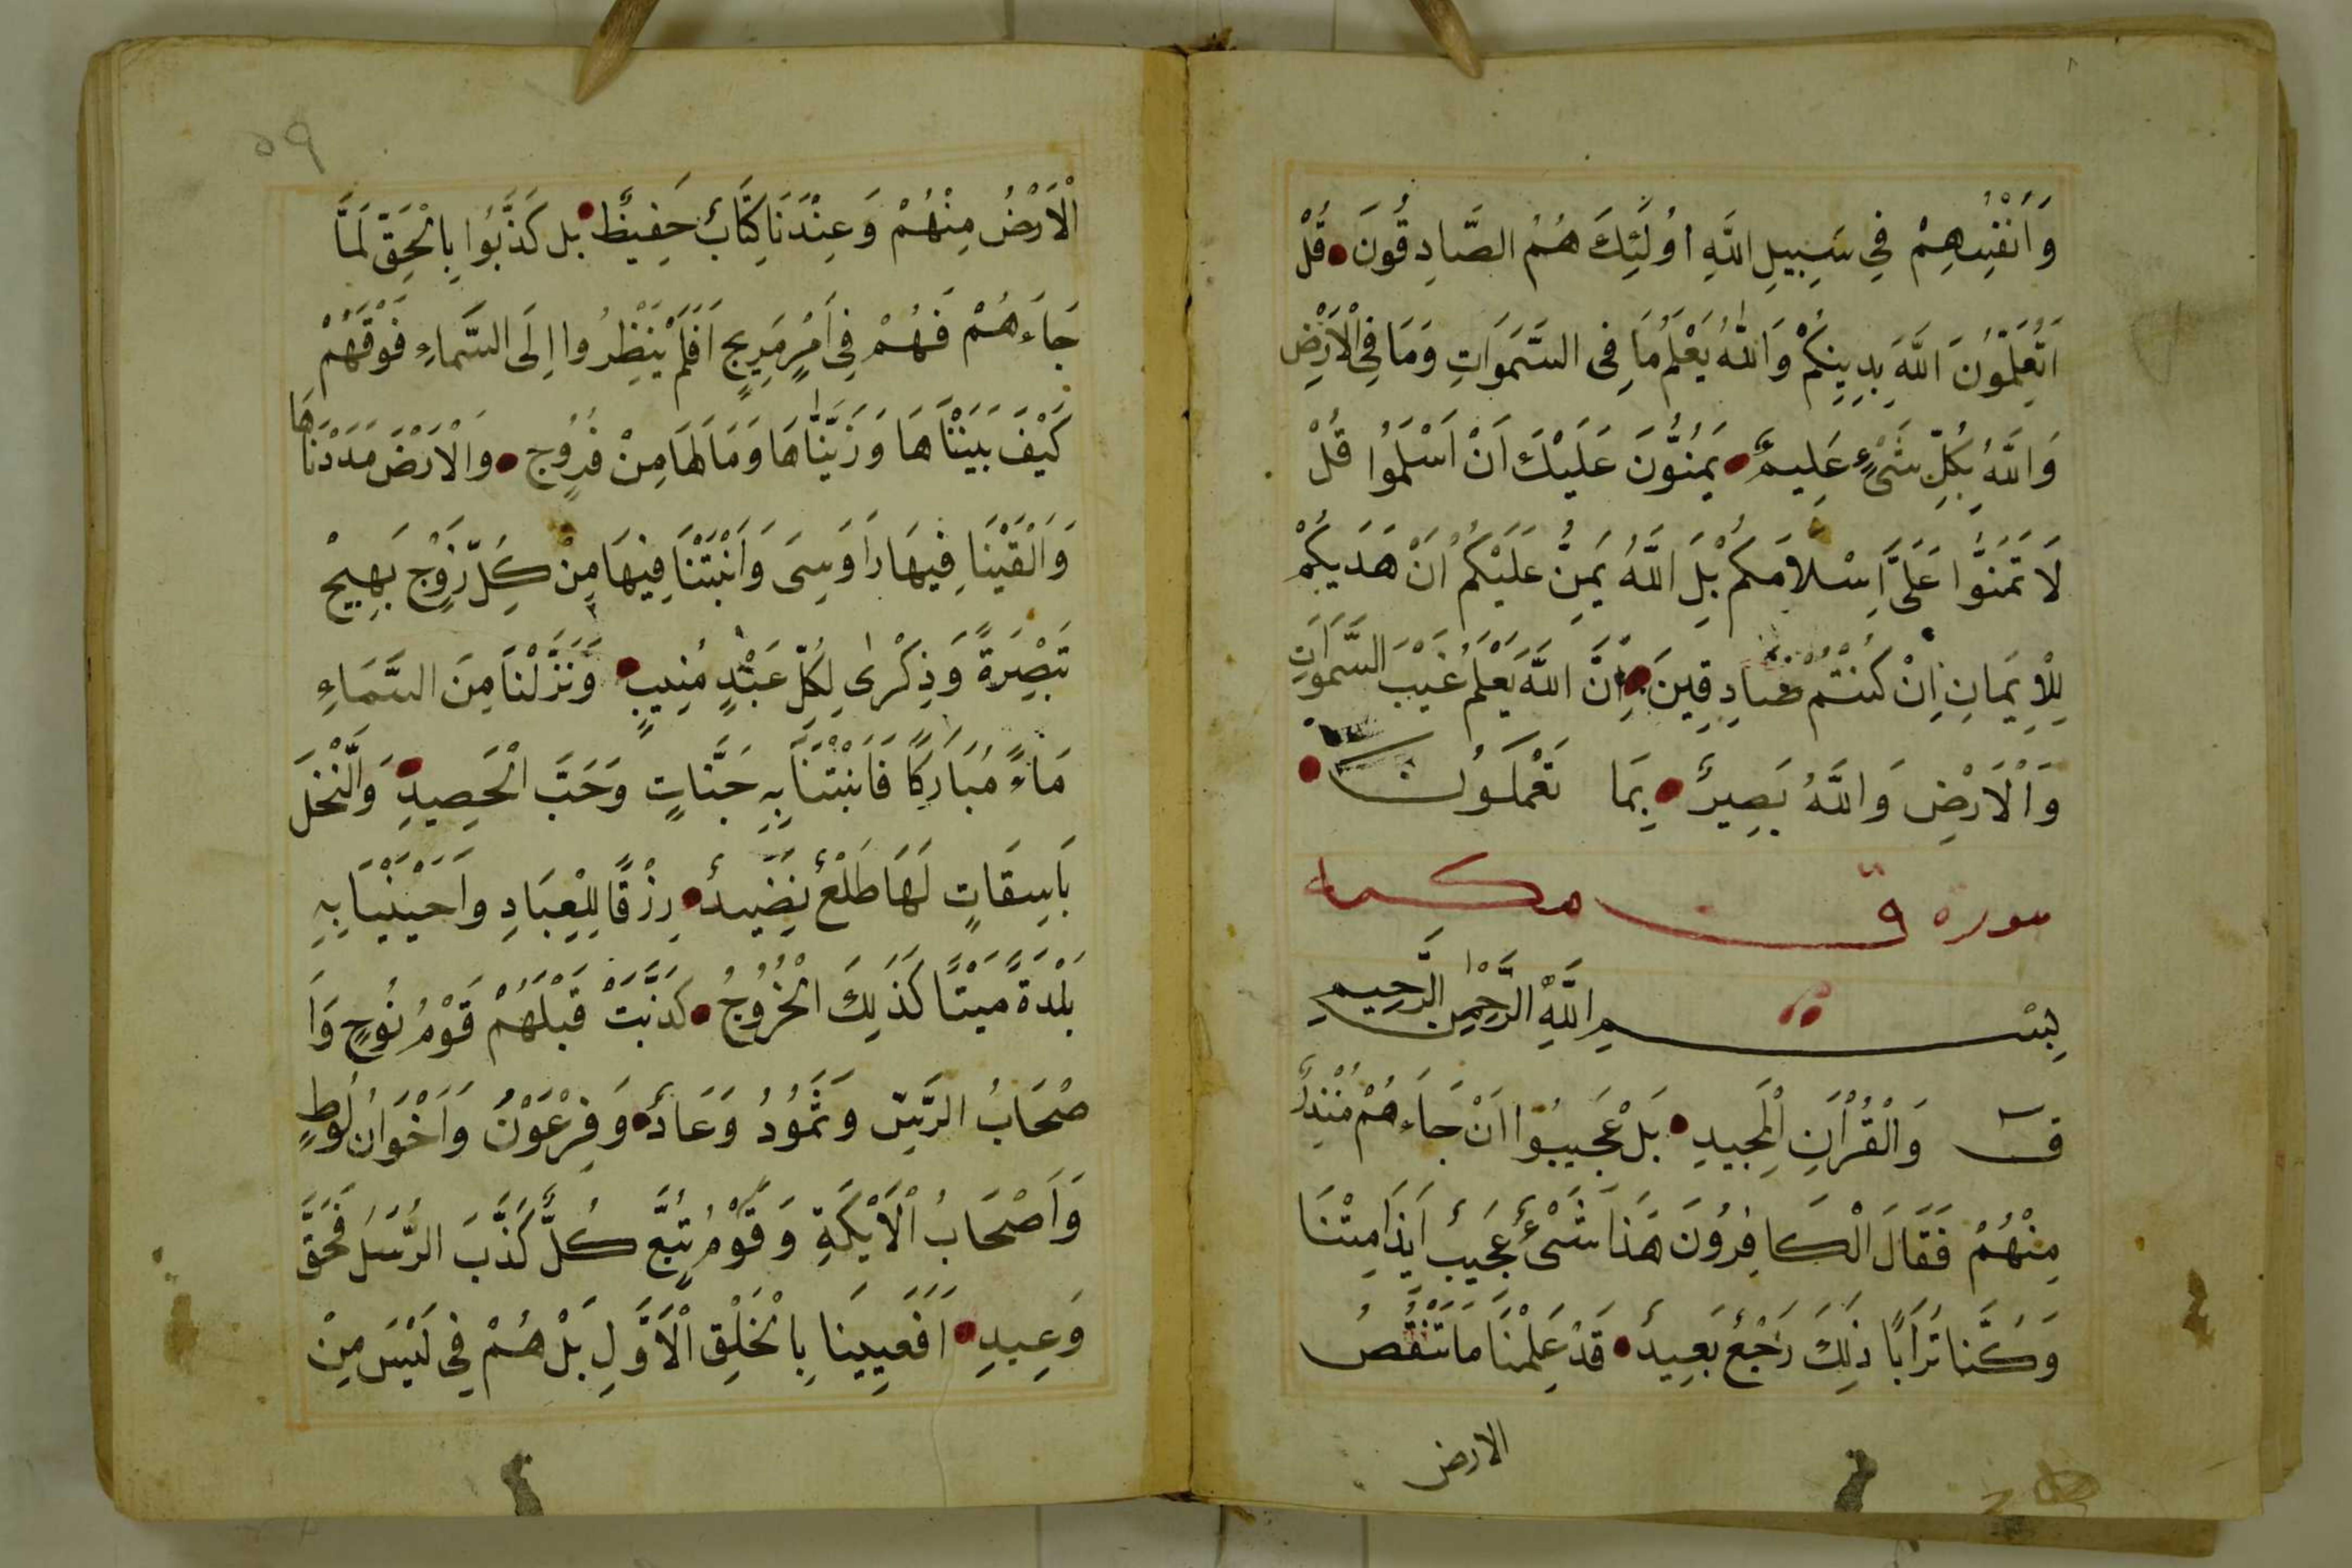 وَاَنْفُسِهِمْ فِي سَبِيلِ اللَّهِ اُولَئِكَ هُمُ الصَّادِقُونَ قُلْ
اَتُعَلِّمُونَ اللَّهَ بِدِينِكُمْ وَاللَّهُ يَعْلَمُ مَا فِي السَّمَوَاتِ وَمَا فِي الْاَرْضِ
وَاللَّهُ بِكُلِّ شَيْءٍ عَلِيمٌ يَمُنُّونَ عَلَيْكَ اَنْ اَسْلَمُوا قُلْ
لَا تَمُنُّوا عَلَيَّ اِسْلَامَكُمْ بَلِ اللَّهُ يَمُنُّ عَلَيْكُمْ اَنْ هَدَيكُمْ
لِلْاِيمَانِ اِنْ كُنْتُمْ صَادِقِينَ اِنَّ اللَّهَ يَعْلَمُ غَيْبَ السَّمَوَاتِ
وَالْاَرْضِ وَاللَّهُ بَصِيرٌ بِمَا تَعْمَلُونَ
سورة ق مكية
بِسْمِ اللَّهِ الرَّحْمَنِ الرَّحِيمِ
ق وَالْقُرْاَنِ الْمَجِيدِ بَلْ عَجِيبُوا اَنْ جَاءَهُمْ مُنْذِرٌ
مِنْهُمْ فَقَالَ الْكَافِرُونَ هَذَا شَيْءٌ عَجِيبٌ اَئِذَا مِتْنَا
وَكُنَّا تُرَابًا ذَلِكَ رَجْعٌ بَعِيدٌ قَدْ عَلِمْنَا مَا تَنْقُصُ
الارض
٥٩
الْاَرْضُ مِنْهُمْ وَعِنْدَنَا كِتَابٌ حَفِيظٌ بل كَذَّبُوا بِالْحَقِّ لَمَّا
جَاءَهُمْ فَهُمْ فِي اَمْرٍ مَرِيجٍ اَفَلَمْ يَنْظُرُوا اِلَى السَّمَاءِ فَوْقَهُمْ
كَيْفَ بَنَيْنَاهَا وَزَيَّنَّاهَا وَمَا لَهَا مِنْ فُرُوجٍ وَالْاَرْضَ مَدَدْنَاهَا
وَاَلْقَيْنَا فِيهَا رَاوَسِىَ وَاَنْبَتْنَا فِيهَا مِنْ كُلِّ زَوْجٍ بَهِيجٍ
تَبْصِرَةً وَذِكْرَى لِكُلِّ عَبْدٍ مُنِيبٍ وَنَزَّلْنَا مِنَ السَّمَاءِ
مَاءً مُبَارَكًا فَاَنْبَتْنَا بِهِ جَنَّاتٍ وَحَبَّ الْحَصِيدِ وَالنَّخْلَ
بَاسِقَاتٍ لَهَا طَلْعٌ نَضِيدٌ رِزْقًا لِلْعِبَادِ وَاَحْيَيْنَا بِهِ
بَلْدَةً مَيْتًا كَذَلِكَ الْخُرُوجُ كَذَّبَتْ قَبْلَهُمْ قَوْمُ نُوحٍ وَاَ
صْحَابُ الرَّسِّ وَثَمُودُ وَعَادٌ وَفِرْعَوْنُ وَاَخْوَانُ لُوطٍ
وَاَصْحَابُ الْاَيْكَةِ وَقَوْمُ تُبَّعٍ كُلٌّ كَذَّبَ الرُّسُلَ فَحَقَّ
وَعِيدِ اَفَعَيِينَا بِالْخَلْقِ الْاَوَّلِ بَلْ هُمْ فِي لَبْسٍ مِنْ